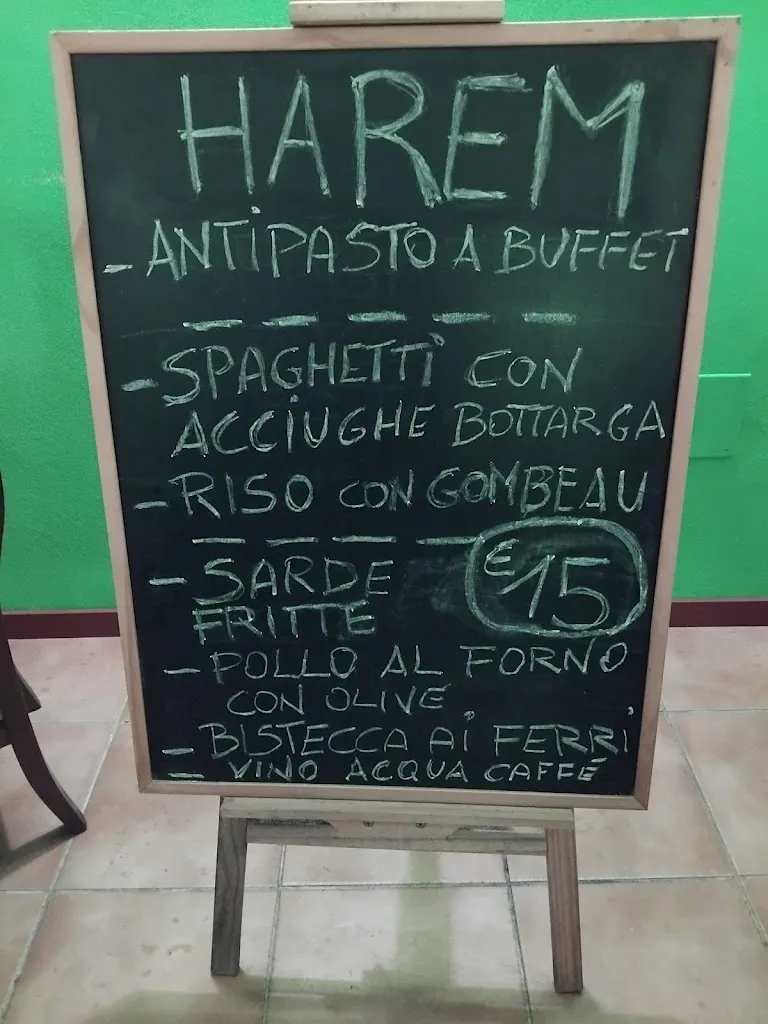 HAREM
- ANTIPASTO A BUFFET
- SPAGHETTI CON
ACCIUGHE BOTTARGA
- RISO CON GOMBEAU
- SARDE
FRITTE
€ 15
- POLLO AL FORNO
CON OLIVE
- BISTECCA AI FERRI
- VINO ACQUA CAFFÉ